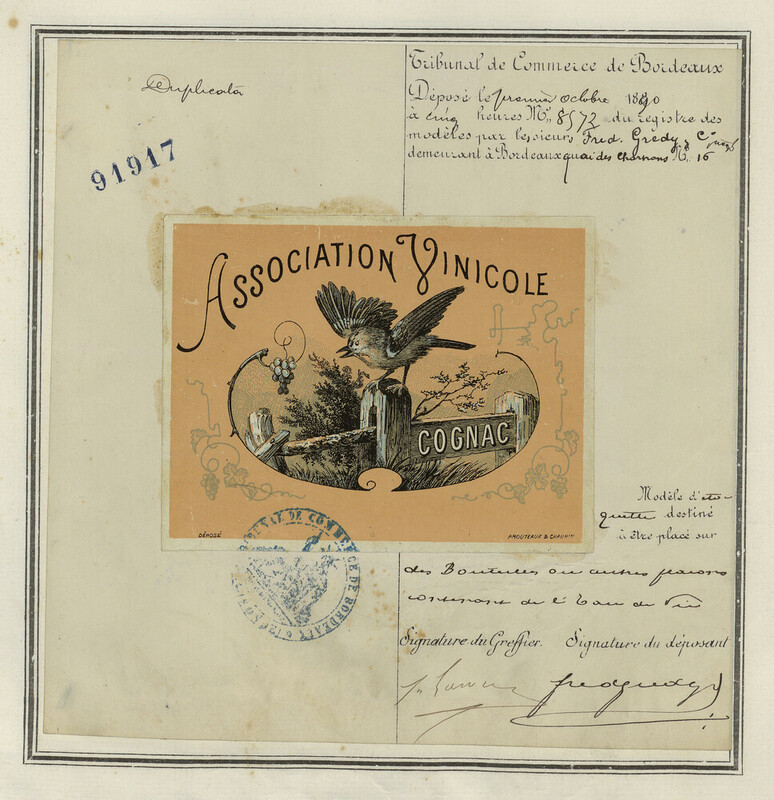 Duplicata
91917
Tribunal de Commerce de Bordeaux
Déposé le premier octobre 1890
à cinq heures No. 8572 du registre des
modèles par les sieurs Fred. Gredy & Cie
demeurant à Bordeaux quai des Chartrons No. 16
ASSOCIATION VINICOLE
COGNAC
DÉPOSÉ
Modèle d'éti-
quette destiné
à être placé sur
des Bouteilles ou autres flacons
contenant de l'Eau de Vie
TRIBUNAL DE COMMERCE DE BORDEAUX
Signature du Greffier. Signature du déposant